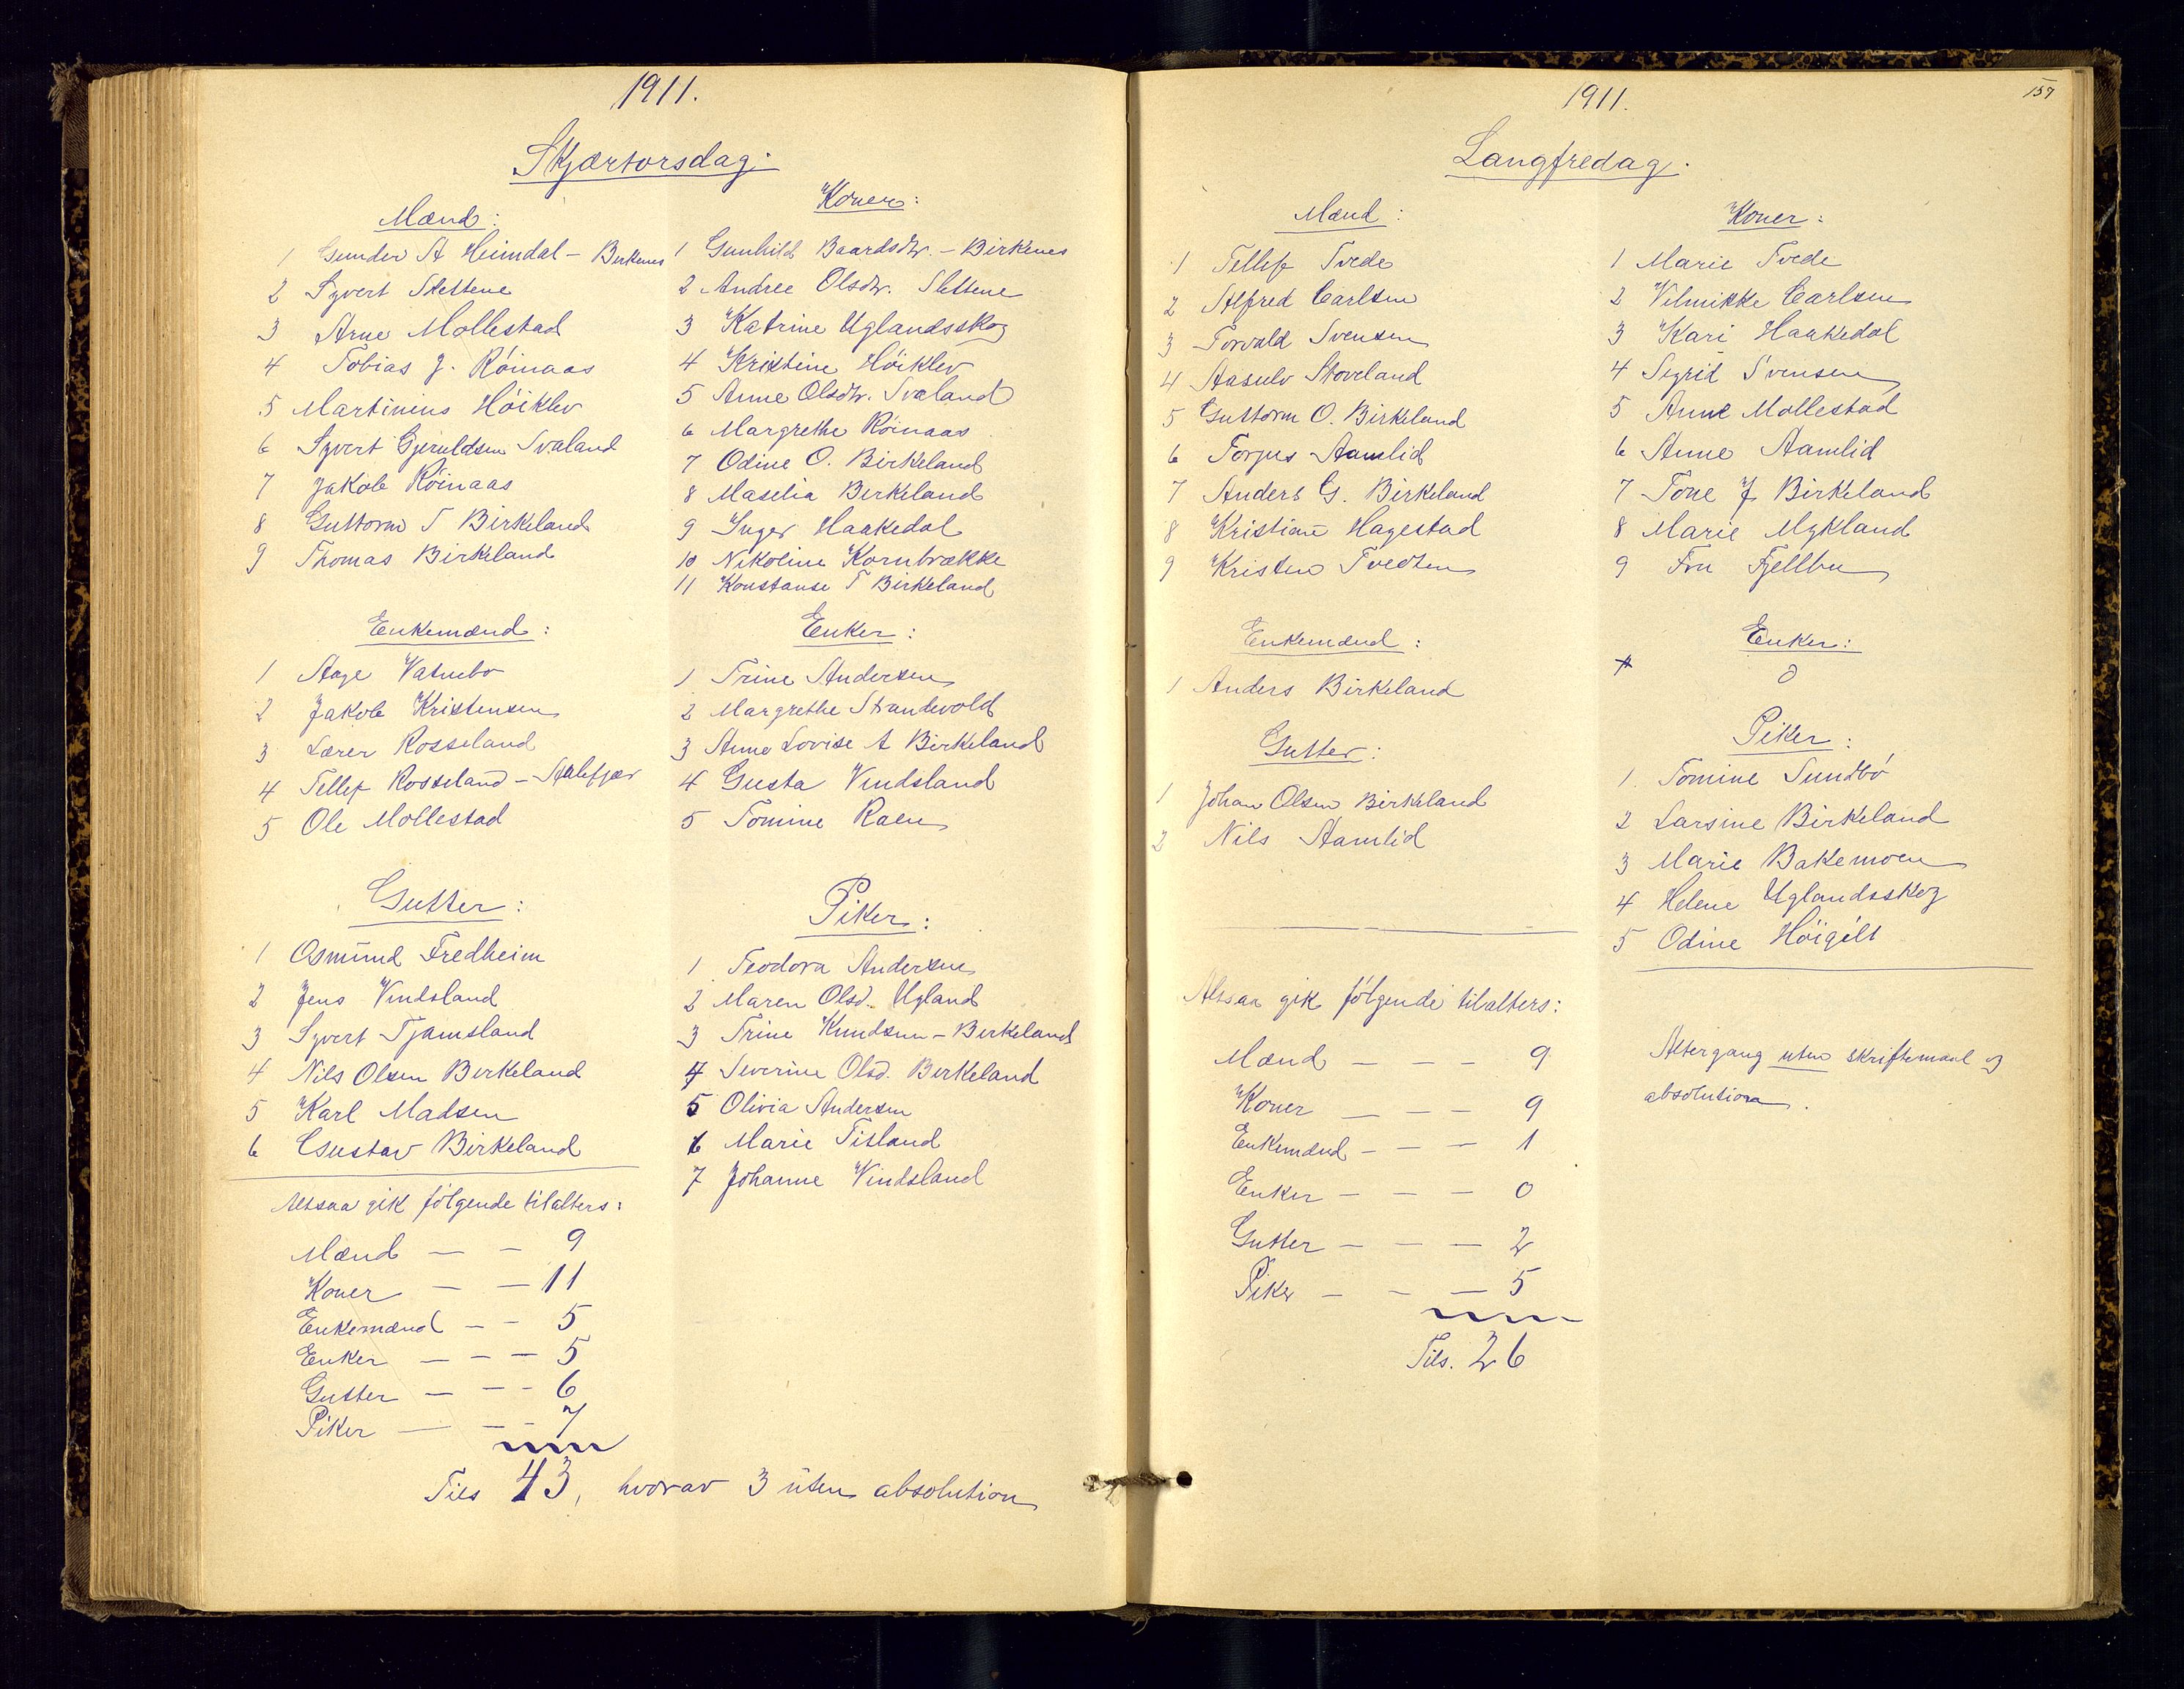 1911.
Skjærtorsdag:
Mænd:
1 Gunder A Heimdal - Birkenes
2 Syvert Slettene
3 Arne Mollestad
4 Tobias J. Röinaas
5 Martinius Höiklev
6 Syvert Gjeruldsen Svaland
7 Jakob Röinaas
8 Guttorm T Birkeland
9 Thomas Birkeland
Koner:
1 Gunhild Baardsdtr. - Birkenes
2 Andree Olsdtr. Slettene
3 Katrine Uglandsskog
4 Kristine Höiklev
5 Anne Olsdtr. Svaland
6 Margrethe Röinaas
7 Odine O. Birkeland
8 Maselia Birkeland
9 Inger Haakedal
10 Nikoline Kornbrække
11 Konstanse T Birkeland
Enkemænd:
1 Aage Vatnebo
2 Jakob Kristensen
3 Lærer Rosseland
4 Tellef Rosseland -
5 Ole Mollestad
Enker:
1 Trine Andersen
2 Margrethe Strandevold
3 Anne Lovise A Birkeland
4 Gusta Vindsland
5 Tomine Raen
Gutter:
1 Osmund Fredheim
2 Jens Vindsland
3 Syvert Tjamsland
4 Nils Olsen Birkeland
5 Karl Madsen
6 Gustav Birkeland
Piker:
1 Teodora Andersen
2 Maren Olsd. Ugland
3 Trine Knudsen - Birkeland
4 Severine Olsd. Birkeland
5 Olivia Andersen
6 Marie Tisland
7 Johanne Vindsland
Altsaa gik följgende tilalters:
Mænd - - 9
Koner - - 11
Enkemænd - - 5
Enker - - - 5
Gutter - - - 6
Piker - - - 7
Tils 43, hvorav 3 uten absolution
157
1911.
Langfredag.
Mænd:
1 Tellef Tvede
2 Alfred Carlsen
3 Torvald Svensen
4 Aasulv Stoveland
5 Guttorm O. Birkeland
6 Torjus Aamlid
7 Anders G. Birkeland
8 Kristian Hagestad
9 Kristen Tvedten
Koner:
1 Marie Tvede
2 Vilmikke Carlsen
3 Kari Haakedal
4 Sigrid Svensen
5 Anne Mollestad
6 Anne Aamlid
7 Tone J Birkeland
8 Marie Mykland
9 Fru Fjellbu
Enkemænd:
1 Anders Birkeland
Enker:
0
Gutter:
1 Johan Olsen Birkeland
2 Nils Aamlid
Piker:
1. Tomine Sundbö
2 Larsine Birkeland
3 Marie Bakemoen
4 Helene Uglandsskog
5 Odine Höigilt
Altsaa gik fölgende tilalters:
Mænd - - - 9
Koner - - - 9
Enkemænd - - - 1
Enker - - - 0
Gutter - - - 2
Piker - - - 5
Tils. 26
Altergang uten skriftemaal og
absolution.